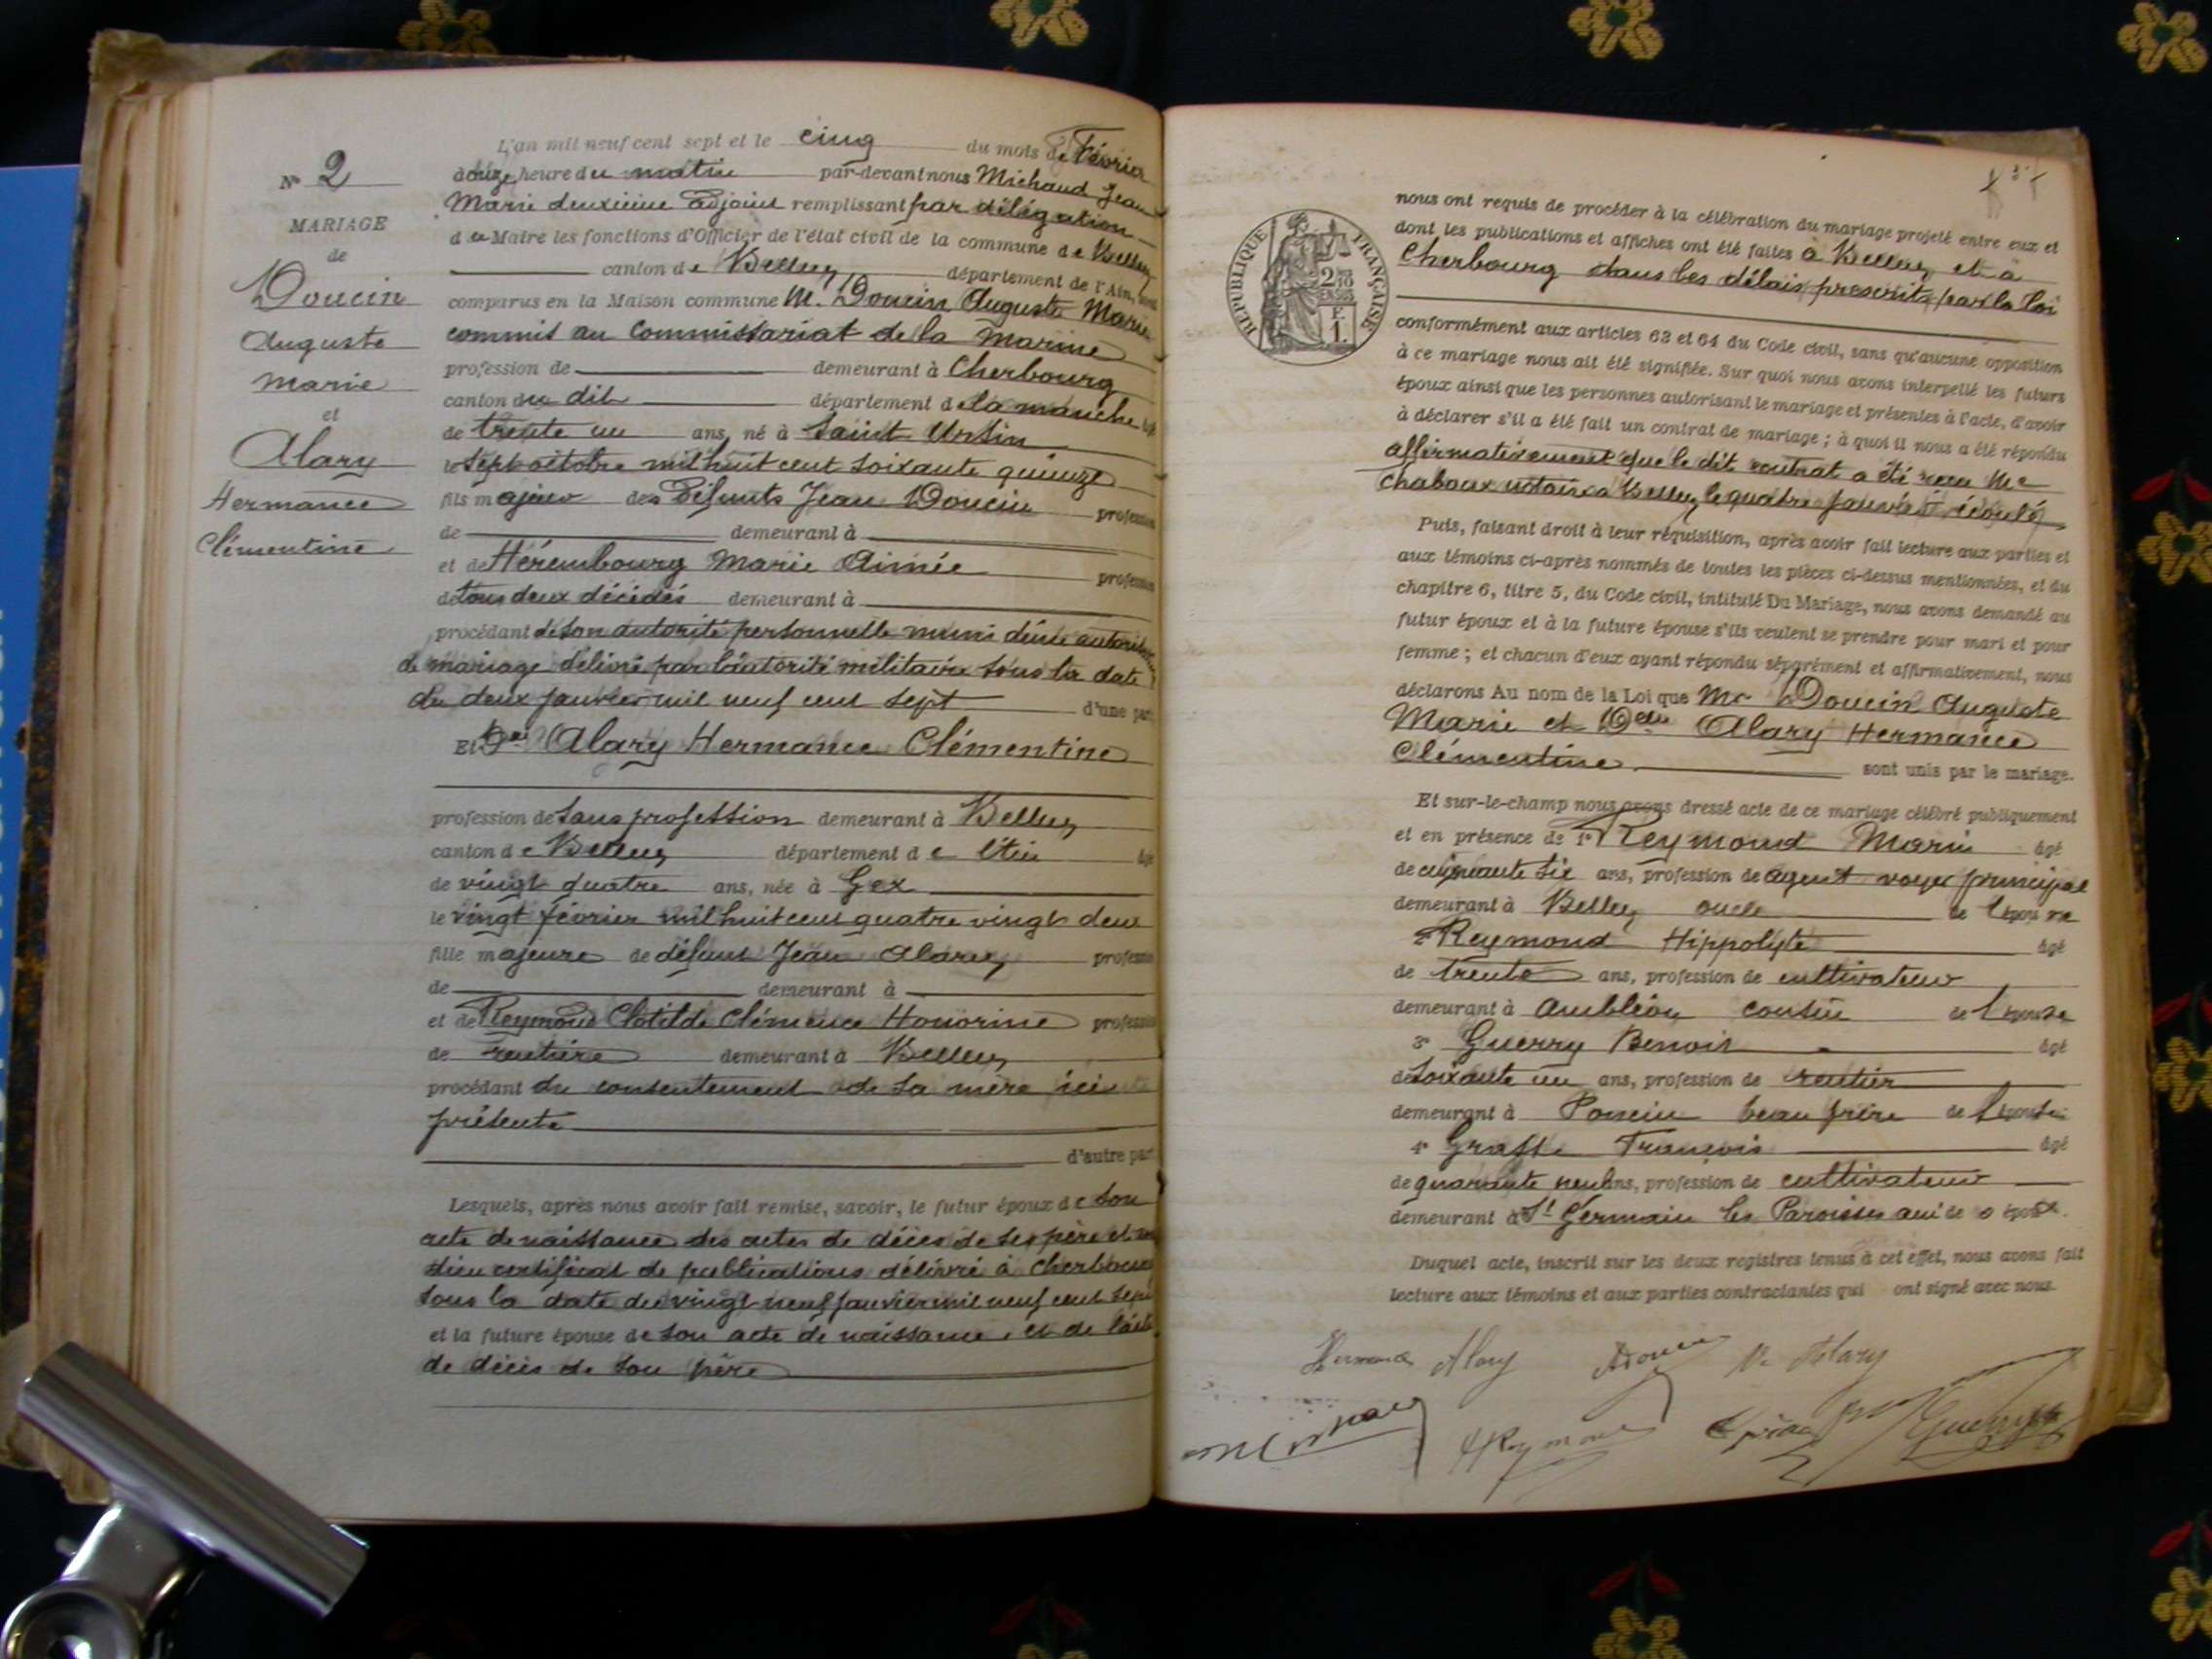 N° 2
MARIAGE
de
Doucin
Auguste
Marie
et
Alary
Hermance
Clémentine
L'an mil neuf cent sept et le cinq du mois de Février
à heure du matin par-devant nous Michaud Jean
Marie deuxième adjoint remplissant par délégation
du Maire les fonctions d'Officier de l'état civil de la commune de Belley
canton de Belley département de l'Ain,
comparus en la Maison commune M. Doucin Auguste Marie
commis au Commissariat de la Marine
profession de demeurant à Cherbourg
canton du dit département de la manche âgé
de trente un ans, né à Saint Ursin
le sept octobre mil huit cent soixante quinze
fils majeur des Défunts Jean Doucin profession
de demeurant à
et de Hérembourg Marie Aimée profession
de tous deux décédés demeurant à
procédant de son autorité personnelle muni d'une autorisation
de mariage délivré par l'autorité militaire sous la date
du deux janvier mil neuf cent sept d'une part
Et Delle Alary Hermance Clémentine
profession de sans profession demeurant à Belley
canton de Belley département de l'Ain âgé
de vingt quatre ans, née à Gex
le vingt février mil huit cent quatre vingt deux
fille majeure de défunt Jean Alary profession
de demeurant à
et de Reymond Clotilde Clémence Honorine profession
de rentière demeurant à Belley
procédant du consentement de sa mère ici
présente
d'autre part
Lesquels, après nous avoir fait remise, savoir, le futur époux de son
acte de naissance des actes de décès de ses père et
certificat de publications délivré à Cherbourg
sous la date du vingt neuf janvier mil neuf cent sept
et la future épouse de son acte de naissance et de l'acte
de décès de son père
RÉPUBLIQUE FRANÇAISE
nous ont requis de procéder à la célébration du mariage projeté entre eux et
dont les publications et affiches ont été faites à Belley et à
Cherbourg dans les délais prescrits par la loi
conformément aux articles 63 et 64 du Code civil, sans qu'aucune opposition
à ce mariage nous ait été signifiée. Sur quoi nous avons interpellé les futurs
époux ainsi que les personnes autorisant le mariage et présentes à l'acte, d'avoir
à déclarer s'il a été fait un contrat de mariage ; à quoi il nous a été répondu
affirmativement que le dit contrat a été reçu Me
Chaboux notaire à Belley le quatre janvier écoulé
Puis, faisant droit à leur réquisition, après avoir fait lecture aux parties et
aux témoins ci-après nommés de toutes les pièces ci-dessus mentionnées, et du
chapitre 6, titre 5, du Code civil, intitulé Du Mariage, nous avons demandé au
futur époux et à la future épouse s'ils veulent se prendre pour mari et pour
femme ; et chacun d'eux ayant répondu séparément et affirmativement, nous
déclarons Au nom de la Loi que Mr Doucin Auguste
Marie et Delle Alary Hermance
Clémentine sont unis par le mariage.
Et sur-le-champ nous avons dressé acte de ce mariage célébré publiquement
et en présence de 1° Reymond Marin âgé
de cinquante six ans, profession de agent voyer principal
demeurant à Belley oncle de l'épouse
2° Reymond Hippolyte âgé
de trente ans, profession de cultivateur
demeurant à Ambléon cousin de l'épouse
3° Guerry Benoit âgé
de soixante un ans, profession de rentier
demeurant à Poncin beau frère de l'épouse
4° François âgé
de quarante neuf ans, profession de cultivateur
demeurant à St Germain les Paroisses ami de épouse.
Duquel acte, inscrit sur les deux registres tenus à cet effet, nous avons fait
lecture aux témoins et aux parties contractantes qui ont signé avec nous.
Hermance Alary Adoucin Ve Alary
HReymond Guerry